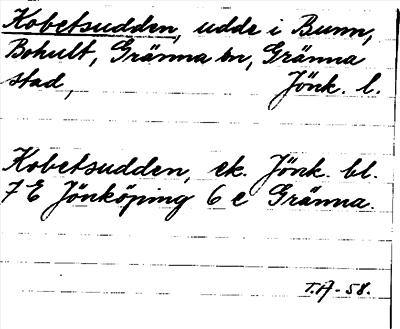 Kobetsudden, udde i Bunn,
Bohult, Gränna sn, Gränna
stad, Jönk. l.
Kobetsudden, ek. Jönk. bl.
7 E Jönköping 6 e Gränna.
T.A-58.